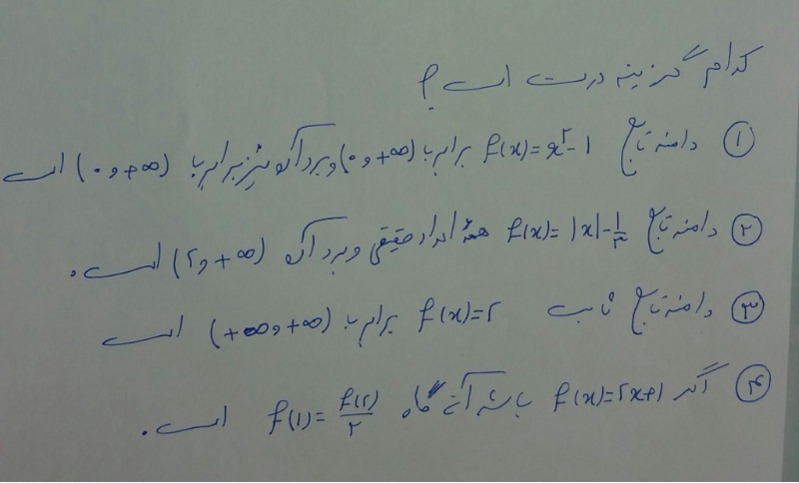 کدام گزینه درست است؟
① دامنه تابع f(x)=x²-1 برابر با (۰ و +∞) و برد آن نیز برابر با (۰ و +∞) است
② دامنه تابع f(x)=|x|-1/۳ همهٔ اعداد حقیقی و برد آن (۲ و +∞) است.
③ دامنه تابع ثابت f(x)=۲ برابر با (+∞ و +∞) است
④ اگر f(x)=۲x+1 باشد آنگاه f(1)=f(۲)/۲ است.